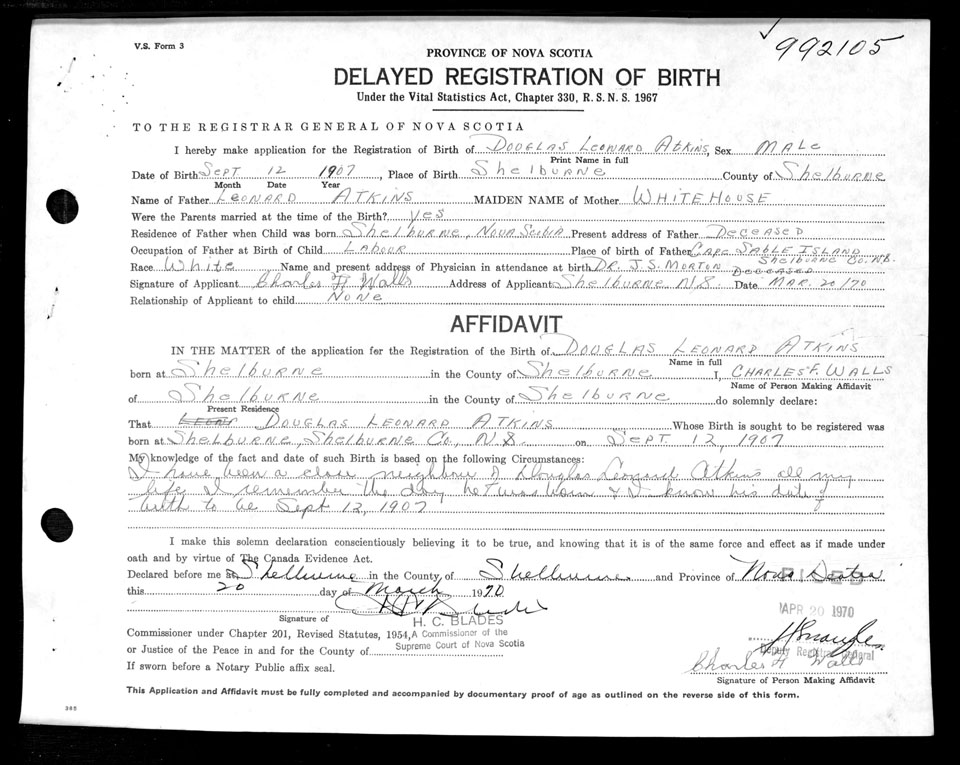 V.S. Form 3
992105
PROVINCE OF NOVA SCOTIA
DELAYED REGISTRATION OF BIRTH
Under the Vital Statistics Act, Chapter 330, R. S. N. S. 1967
TO THE REGISTRAR GENERAL OF NOVA SCOTIA
I hereby make application for the Registration of Birth of DOUGLAS LEONARD ATKINS, Sex MALE
Print Name in full
Date of Birth SEPT. 12 1907, Place of Birth Shelburne County of Shelburne
Month Date Year
Name of Father LEONARD ATKINS MAIDEN NAME of Mother WHITEHOUSE
Were the Parents married at the time of the Birth? Yes
Residence of Father when Child was born Shelburne, NOVA Scotia Present address of Father DECEASED
Occupation of Father at Birth of Child LABOUR Place of birth of Father CAPE SABLE ISLAND
SHELBURNE CO. N.S.
Race White Name and present address of Physician in attendance at birth DR. J.S. MORTON DECEASED
Signature of Applicant Charles F Walls Address of Applicant Shelburne N.S. Date MAR. 20/70
Relationship of Applicant to child NONE
AFFIDAVIT
IN THE MATTER of the application for the Registration of the Birth of DOUGLAS LEONARD ATKINS
Name in full
born at Shelburne in the County of Shelburne I, CHARLES F. WALLS
Name of Person Making Affidavit
of Shelburne in the County of Shelburne do solemnly declare:
Present Residence
That DOUGLAS LEONARD ATKINS Whose Birth is sought to be registered was
born at Shelburne, Shelburne Co., N.S. on SEPT 12, 1907
My knowledge of the fact and date of such Birth is based on the following Circumstances:
I have been a close neighbour of Douglas Leonard Atkins all my
life. I remember the day he was born & I know his date of
birth to be Sept 12, 1907
I make this solemn declaration conscientiously believing it to be true, and knowing that it is of the same force and effect as if made under
oath and by virtue of The Canada Evidence Act.
Declared before me at Shelburne in the County of Shelburne and Province of Nova Scotia
this 20 day of March 1970
FILED
APR 20 1970
Signature of H. C. BLADES
Commissioner under Chapter 201, Revised Statutes, 1954, A Commissioner of the
or Justice of the Peace in and for the County of Supreme Court of Nova Scotia
Deputy Registrar General
If sworn before a Notary Public affix seal.
Charles F Walls
Signature of Person Making Affidavit
This Application and Affidavit must be fully completed and accompanied by documentary proof of age as outlined on the reverse side of this form.